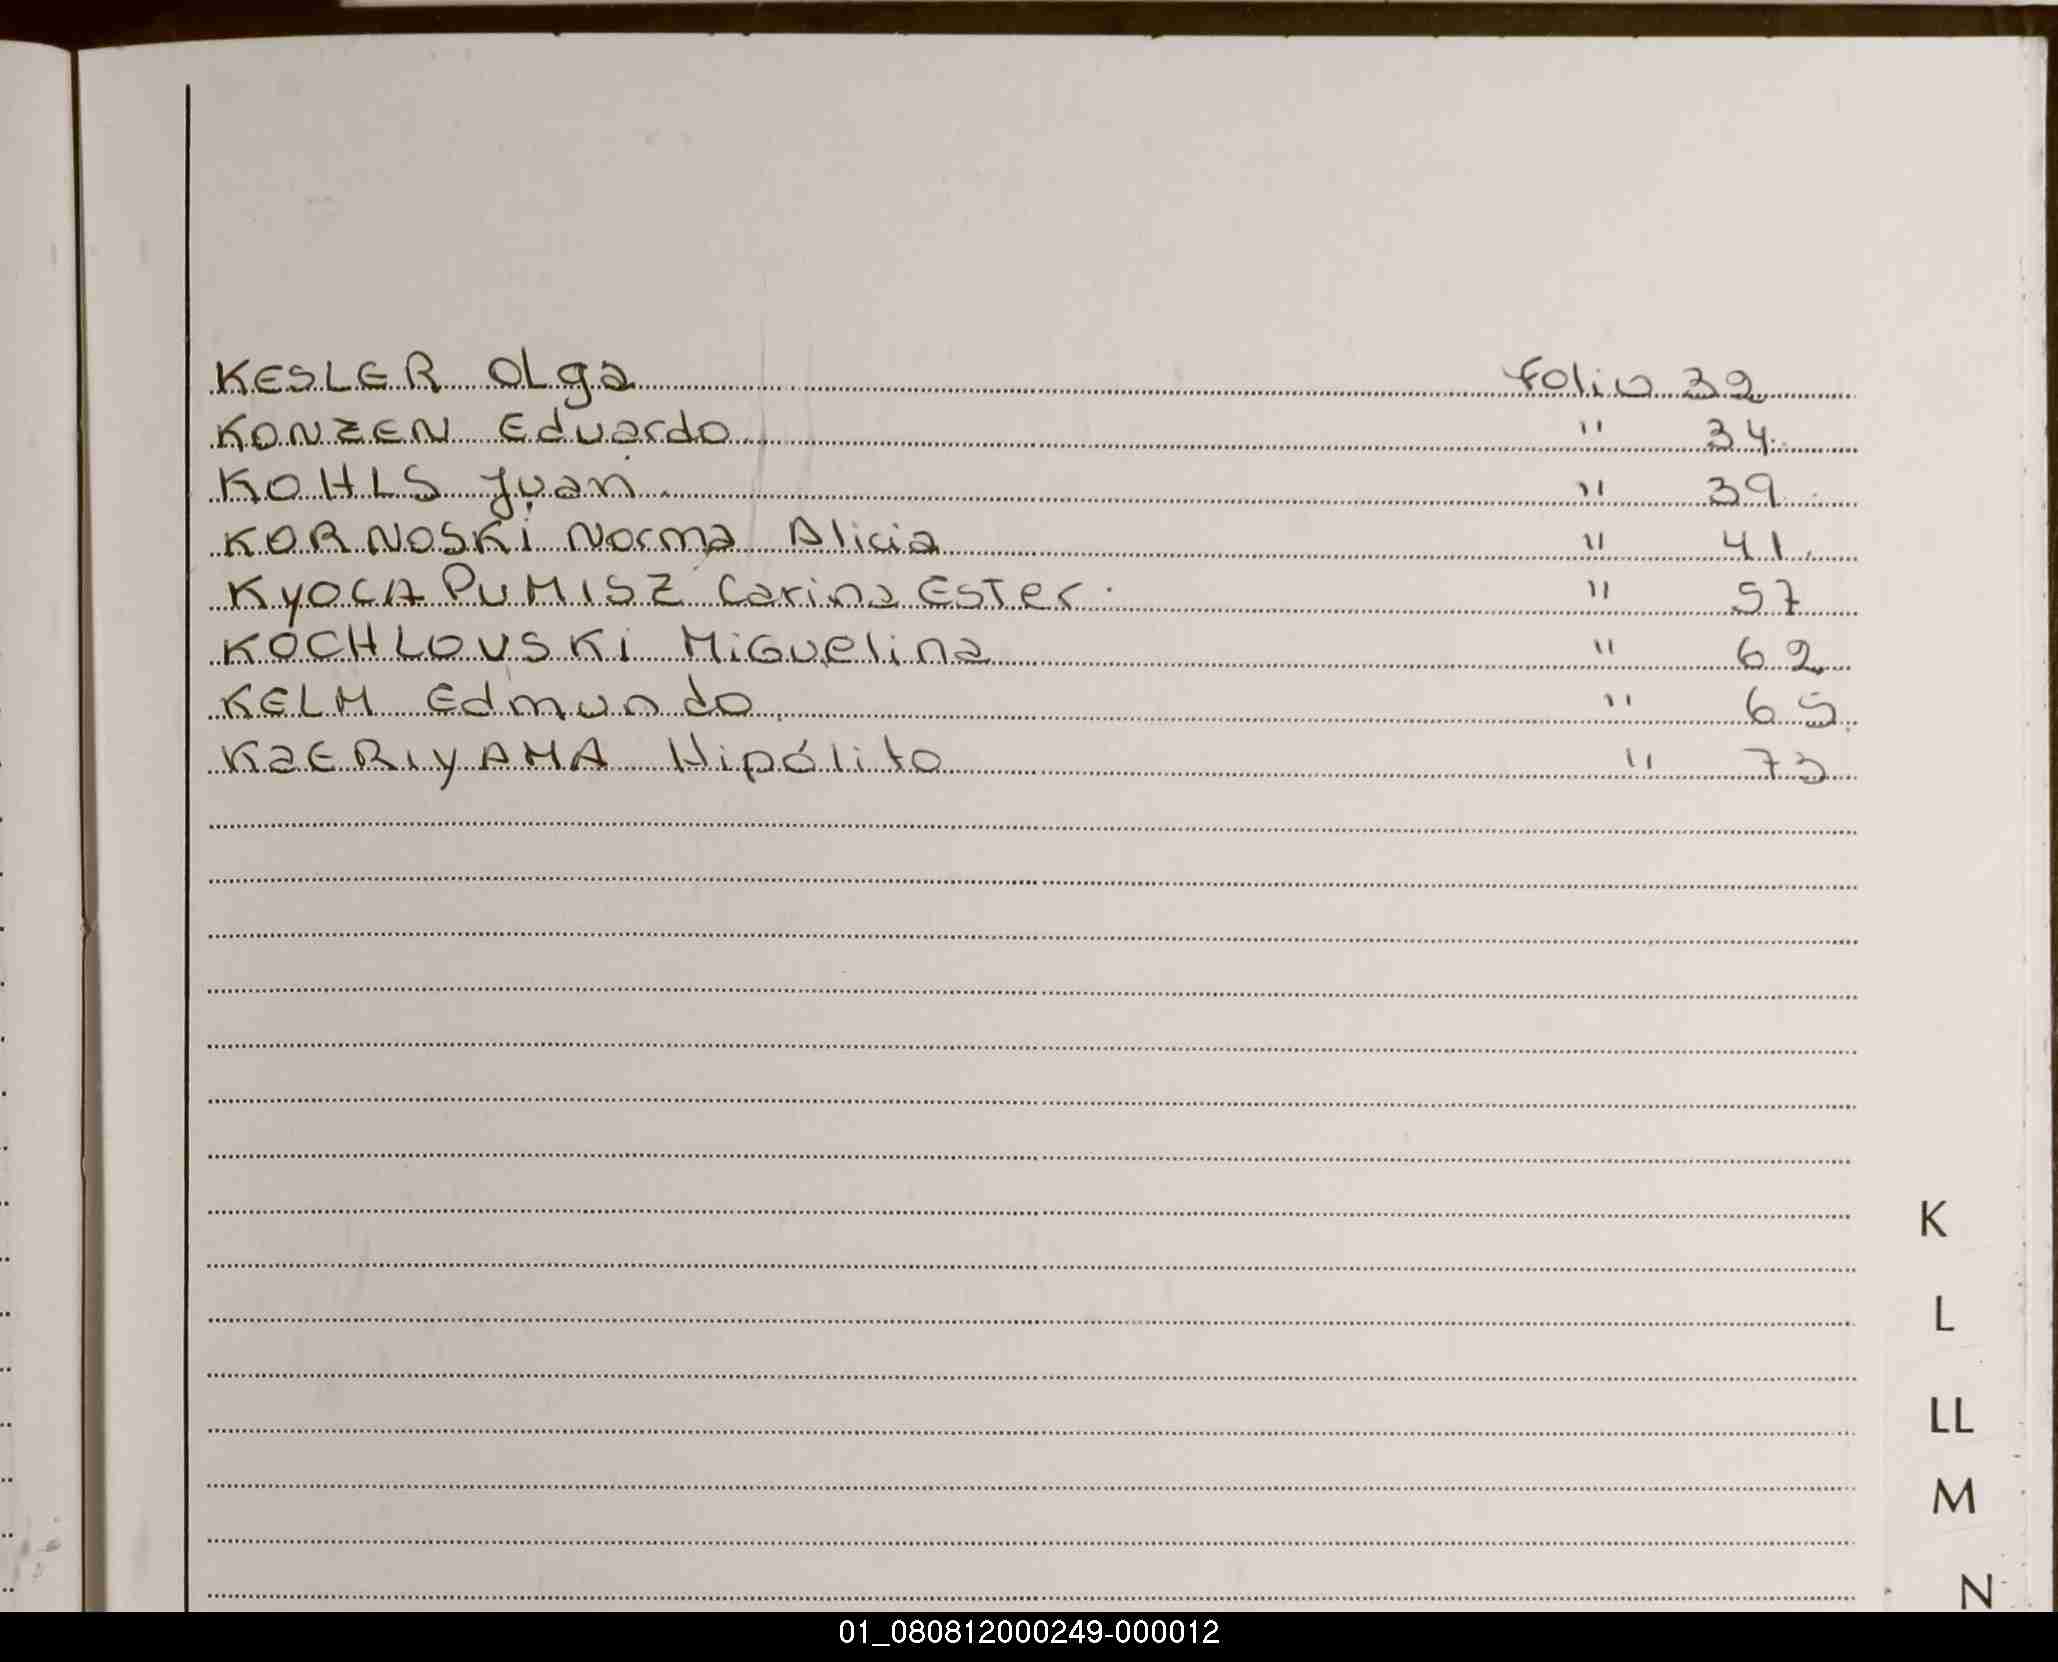 KESLER Olga folio 32
KONZEN Eduardo " 34
KOHLS Juan " 39
KORNOSKi Norma Alicia " 41
KyOCA PUMISZ Carina Ester " 57
KOCHLOUSKi Miguelina " 62
KELM Edmundo " 65
KaERIyAMA Hipólito " 73
K
L
LL
M
N
01_080812000249-000012